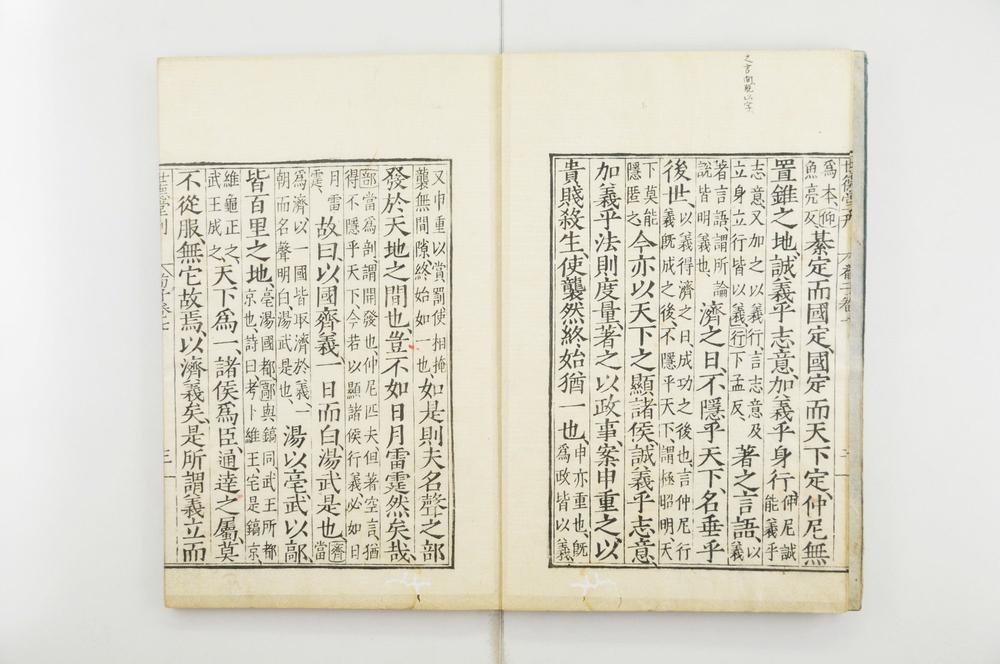 之言間脫以字
為本、仰
魚亮反
綦定而國定、國定而天下定、仲尼無
置錐之地、誠義乎志意、加義乎身行、
仲尼誠
能義乎
志意、又加之以義行、言志意及
立身立行皆以義、行下孟反、
著之言語、
以
義
著言語、謂所論
說皆明義也、
濟之日、不隱乎天下、名垂乎
後世、
以義得濟之日、成功之後也、言仲尼行
義既成之後、不隱乎天下、謂極昭明、天
下莫能
隱匿之、
今亦以天下之顯諸侯、誠義乎志意、
加義乎法則度量、著之以政事、案申重之、以
貴賤殺生、使襲然終始猶一也、
申亦重也、既
為政皆以義、
又申重以賞罰、使相掩
襲無間隙、終始如一也、
如是則夫名聲之部
發於天地之間也、豈不如日月雷霆然矣哉、
部當為剖、謂開發也、仲尼匹夫但著空言、猶
得不隱乎天下、今若以顯諸侯行義、必如日
月雷
霆、
故曰、以國齊義、一日而白、湯武是也、
齊
當
為濟、以一國皆取濟於義、一
朝而名聲明白、湯武是也、
湯以亳、武以鄗、
皆百里之地、
亳湯國都、鄗與鎬同、武王所都
京也、詩曰、考卜維王、宅是鎬京、
維龜正之、
武王成之、
天下為一、諸侯為臣、通達之屬、莫
不從服、無它故焉、以濟義矣、是所謂義立而
世德堂刊
荀子卷七
三